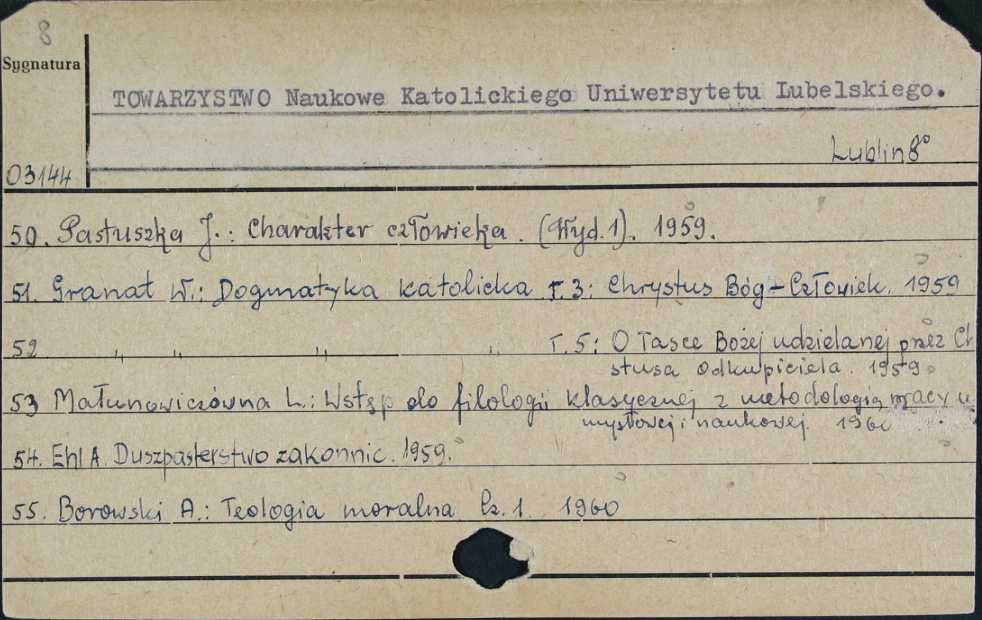 8
Sygnatura
TOWARZYSTWO Naukowe Katolickiego Uniwersytetu Lubelskiego.
Lublin 8°
03144
50. Pastuszka J.: Charakter człowieka. (Wyd. 1). 1959.
51. Granat W.: Dogmatyka katolicka T. 3: Chrystus Bóg-Człowiek. 1959
52 " " " " T. 5: O łasce Bożej udzielanej przez Ch
stusa Odkupiciela. 1959.
53 Małunowiczówna L.: Wstęp do filologii klasycznej z metodologią pracy u
mysłowej i naukowej. 1960
54. Ehl A. Duszpasterstwo zakonnic. 1959.
55. Borowski A.: Teologia moralna Cz. 1. 1960